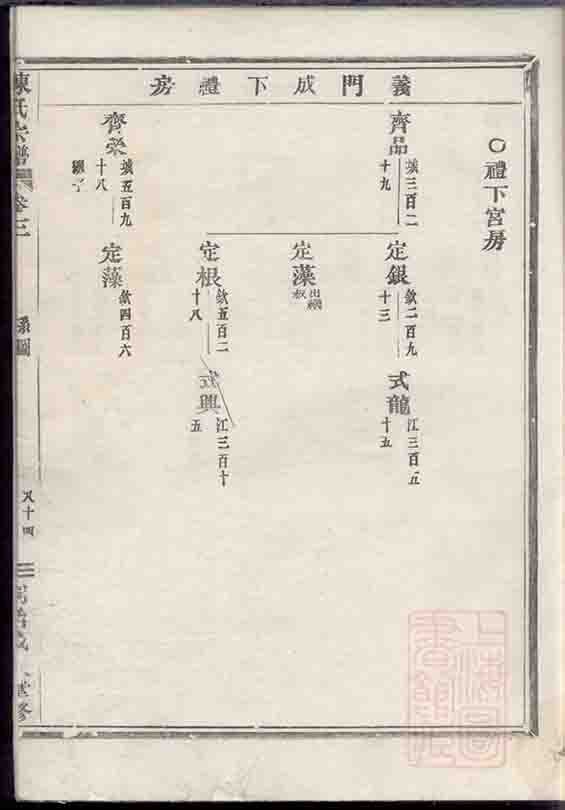 義門成下禮房
〇禮下宮房
齊品
三百二
十九
定銀
欽二百九
十三
式龍
江三百五
十五
定藻
出繼
叔
定根
欽五百二
十八
興
江三百十
五
齊榮
五百九
十八
繼子
定藻
欽四百六
陳氏宗譜
卷三
系圖
八十四
上海圖書館藏